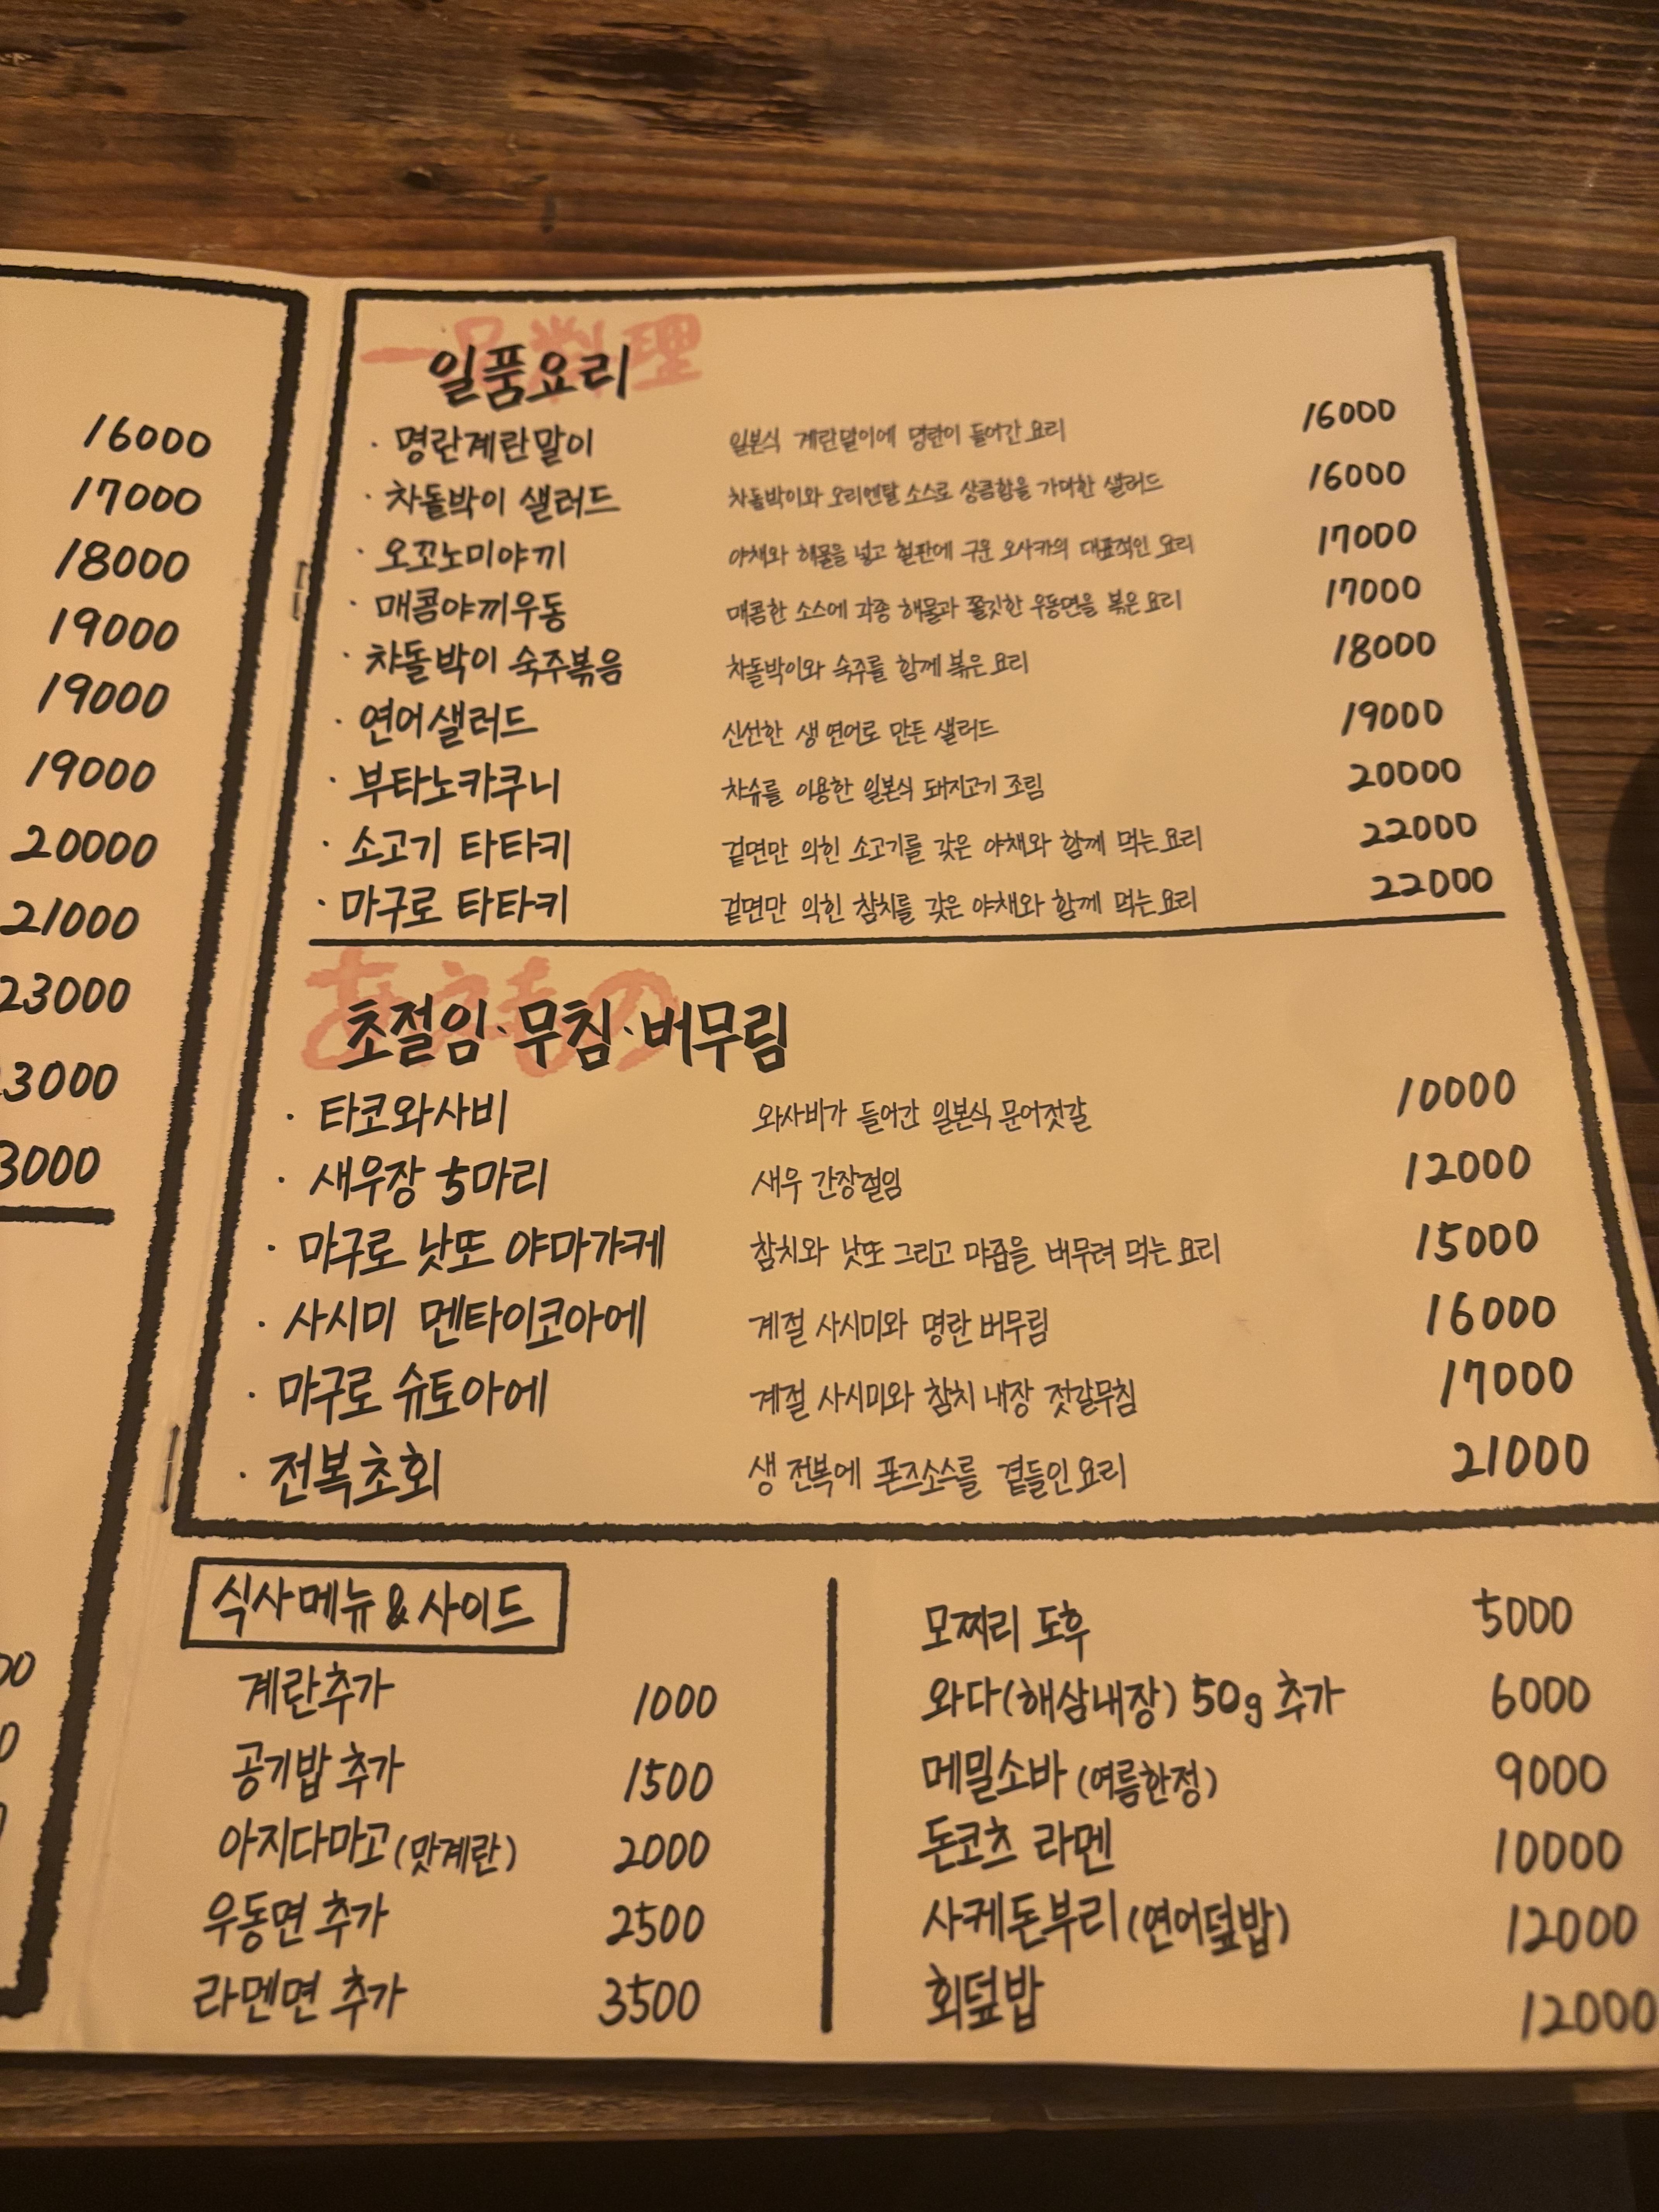 16000
17000
18000
19000
19000
19000
20000
21000
23000
3000
3000
一品料理
일품요리
· 명란계란말이 일본식 계란말이에 명란이 들어간 요리 16000
· 차돌박이 샐러드 차돌박이와 오리엔탈 소스로 상큼함을 가미한 샐러드 16000
· 오꼬노미야끼 야채와 해물을 넣고 철판에 구운 오사카의 대표적인 요리 17000
· 매콤야끼우동 매콤한 소스에 각종 해물과 쫄깃한 우동면을 볶은 요리 17000
· 차돌박이 숙주볶음 차돌박이와 숙주를 함께 볶은 요리 18000
· 연어샐러드 신선한 생 연어로 만든 샐러드 19000
· 부타노카쿠니 차슈를 이용한 일본식 돼지고기 조림 20000
· 소고기 타타키 겉면만 익힌 소고기를 갖은 야채와 함께 먹는 요리 22000
· 마구로 타타키 겉면만 익힌 참치를 갖은 야채와 함께 먹는 요리 22000
あえもの
초절임·무침·버무림
· 타코와사비 와사비가 들어간 일본식 문어젓갈 10000
· 새우장 5마리 새우 간장절임 12000
· 마구로 낫또 야마가케 참치와 낫또 그리고 마즙을 버무려 먹는 요리 15000
· 사시미 멘타이코아에 계절 사시미와 명란 버무림 16000
· 마구로 슈토아에 계절 사시미와 참치 내장 젓갈무침 17000
· 전복초회 생 전복에 폰즈소스를 곁들인 요리 21000
식사메뉴&사이드
계란추가 1000
공기밥 추가 1500
아지다마고(맛계란) 2000
우동면 추가 2500
라멘면 추가 3500
모찌리 도후 5000
와다(해삼내장) 50g 추가 6000
메밀소바(여름한정) 9000
돈코츠 라멘 10000
사케돈부리(연어덮밥) 12000
회덮밥 12000